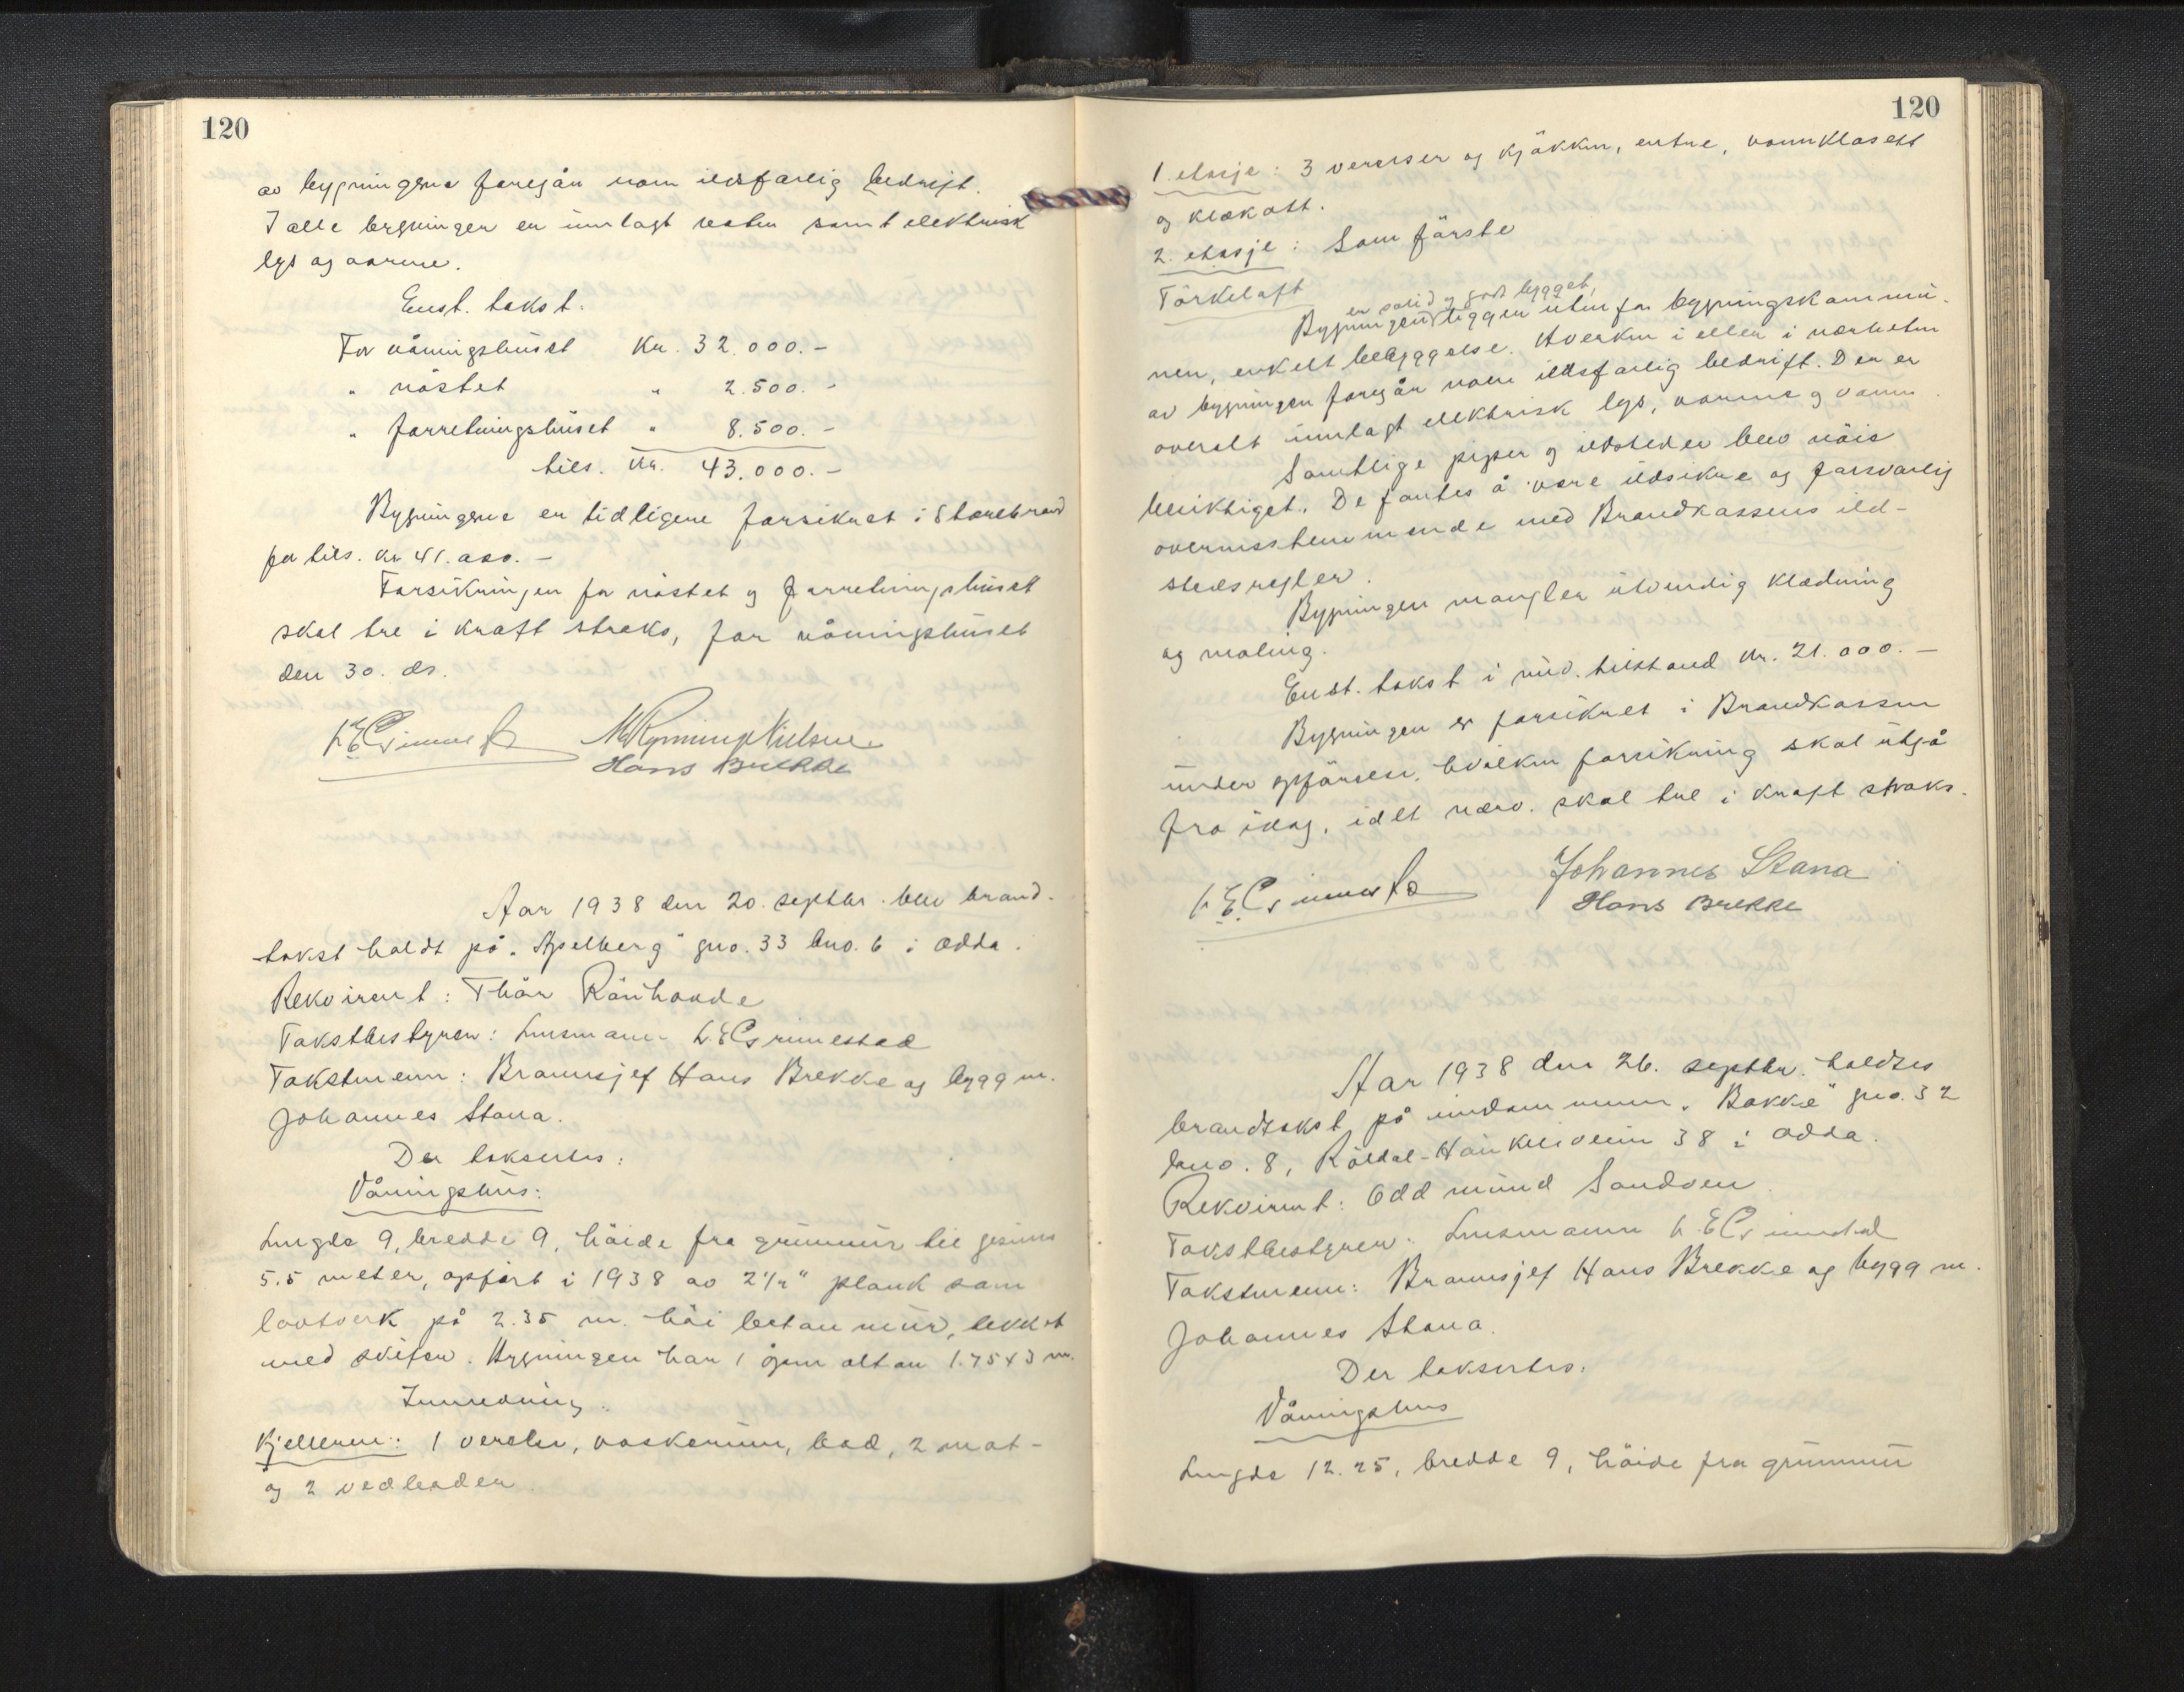 120
av bygningene foregår noen ildsfarlig bedrift.
I alle bygninger er innlagt vatn samt elektrisk
lys og varme.
Enst. takst.
For våningshuset Kr. 32.000.-
" nöstet " 2.500.-
" forretningshuset " 8.500.-
tils. Kr. 43.000.-
Bygningene er tidligere forsikret i Storebrand
for tils. kr 41.000.-
Forsikringen for nöstet og forretningshuset
skal tre i kraft straks, for våningshuset
den 30. ds.
L. E. Grimestad M Rynning Nielsen
Hans Brekke
Aar 1938 den 20. septbr. blev brand-
takst holdt på "Apelberg" gno. 33 bno. 6 i Odda.
Rekvirent: Thor
Takstbestyrer: Lensmann L. E. Grimestad
Takstmenn: Brannsjef Hans Brekke og bygg m.
Johannes Stana.
Der taksertes:
Våningshus:
Lengde 9, bredde 9, höide fra grunnmur til gesims
5.5 meter, opfört i 1938 av 2½" plank som
lavtverk på 2.35 m. höi betonmur, tekket
med skifer. Bygningen har 1 åpen altan 1.75 x 3 m.
Innredning:
Kjelleren: 1 verelse, vaskerum, bad, 2 mat-
og 2 vedboder
120
1. etasje: 3 verelser og kjökken, entre, vannklosett
og klekott.
2. etasje: Som förste
Törkeloft
er solid og godt bygget,
Bygningen ligger utenfor bygningskommu-
nen, enkelt bebyggelse. Hverken i eller i nærheten
av bygningen foregår noen ildsfarlig bedrift. Der er
overalt innlagt elektrisk lys, varme og vann.
Samtlige piper og ildsteder blev nöie
besiktiget. De fantes å være ildsikre og forsvarlig
overensstemmende med Brandkassens ild-
stedsregler.
Bygningen mangler utvendig klædning
og maling.
Enst. takst i nuv. tilstand kr. 21.000.-
Bygningen er forsikret i Brandkassen
under opförelse, hvilken forsikring skal utgå
fra idag, idet nærv. skal tre i kraft straks.
L. E. Grimestad Johannes Stana
Hans Brekke
Aar 1938 den 26. septbr. holdtes
brandtakst på eiendommen "Bakke" gno. 32
bno. 8, Röldal-Haukeliveien 38 i Odda.
Rekvirent: Oddmund Sandven
Takstbestyrer: Lensmann L. E. Grimestad
Takstmenn: Brannsjef Hans Brekke og bygg m.
Johannes Stana.
Der taksertes:
Våningshus
Lengde 12.25, bredde 9, höide fra grunnmur